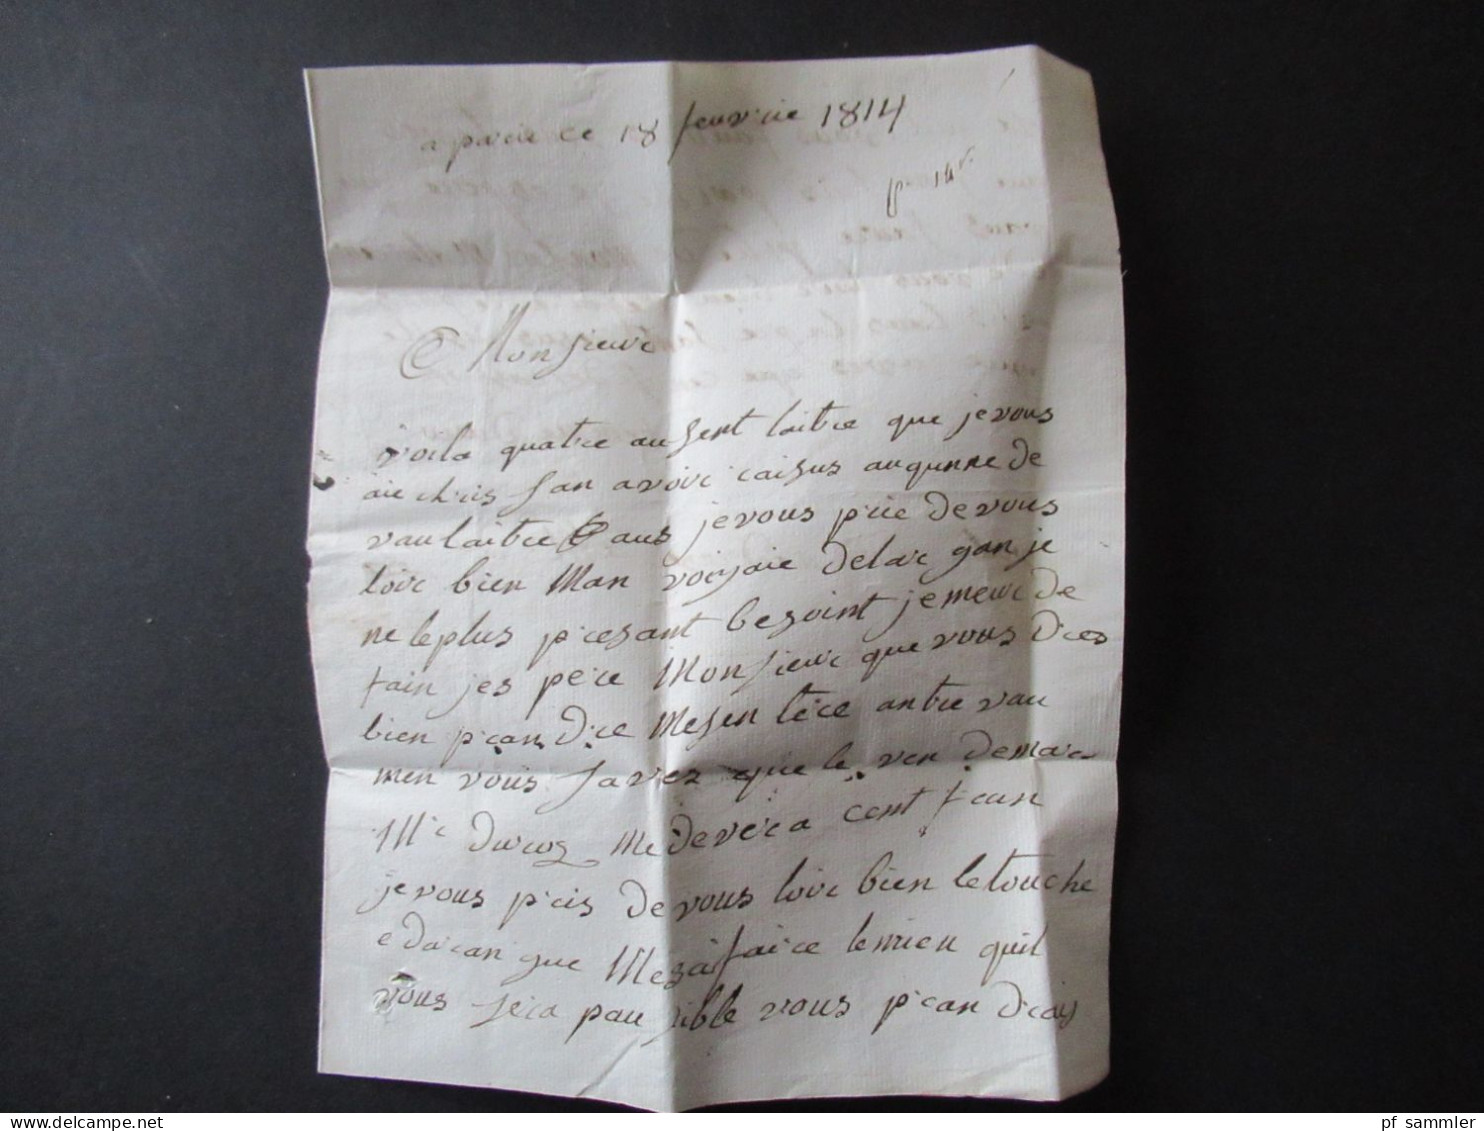 a paris ce 18 feuvrie 1814
Monsieur
voila quatre au sent laitre que je vous
ai chris san avoir raisus auqunne de
vau laitre aus je vous prie de vous
loir bien Man voijaie delar gan je
ne le plus presant besoint je meur de
fain jes pere Monsieur que vous dres
bien pran dre Mesen tere antre vau
men vous savez que le ven de mar
Mr Me devera cent fran
je vous pris de vous loir bien le touche
e dacan que Mesai faire le mieu quil
vous sera pau sible vous pran drais
pf_sammler